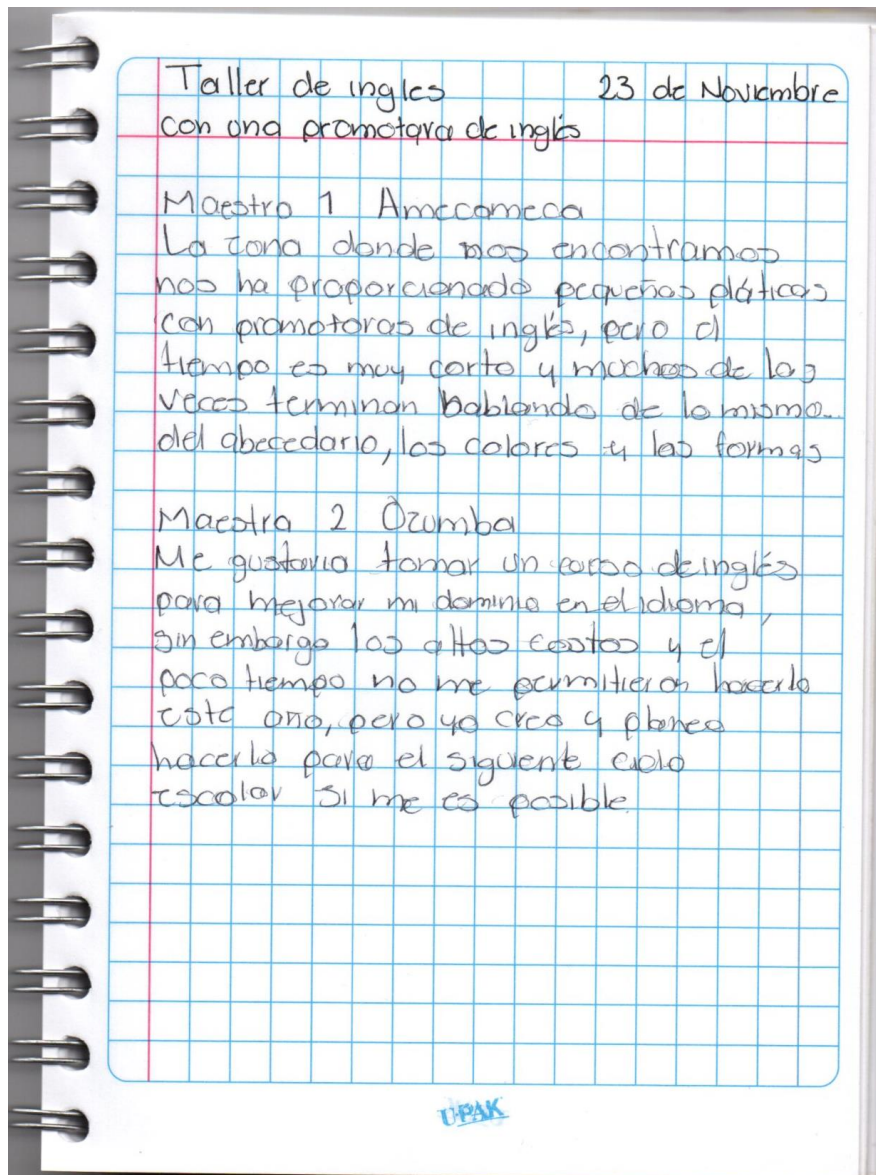 Taller de ingles 23 de Noviembre
con una promotora de inglés
Maestro 1 Amecameca
La zona donde nos encontramos
nos ha proporcionado pequeñas pláticas
con promotoras de inglés, pero el
tiempo es muy corto y muchas de las
veces terminan hablando de lo mismo..
del abecedario, los colores y las formas
Maestra 2 Ozumba
Me gustaria tomar un curso de inglés
para mejorar mi dominio en el idioma,
sin embargo los altos costos y el
poco tiempo no me permitieron hacerlo
este año, pero yo creo y planeo
hacerlo para el siguiente ciclo
escolar si me es posible
UPAK